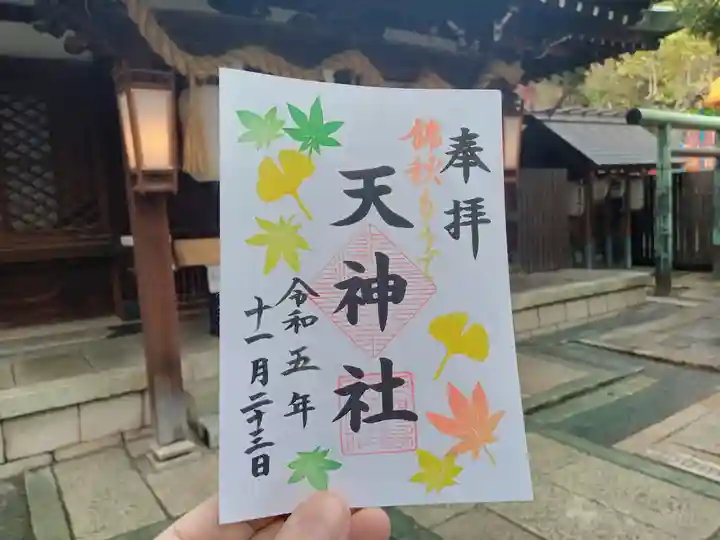 奉拝
錦秋もうで
天神社
令和五年
十一月二十三日